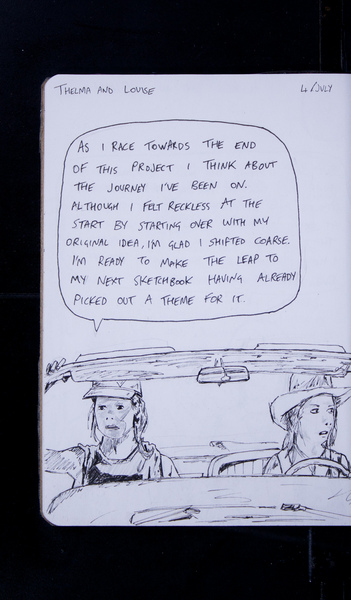 THELMA AND LOUISE
4/JULY
AS I RACE TOWARDS THE END
OF THIS PROJECT I THINK ABOUT
THE JOURNEY I'VE BEEN ON.
ALTHOUGH I FELT RECKLESS AT THE
START BY STARTING OVER WITH MY
ORIGINAL IDEA, I'M GLAD I SHIFTED COARSE.
I'M READY TO MAKE THE LEAP TO
MY NEXT SKETCHBOOK HAVING ALREADY
PICKED OUT A THEME FOR IT.